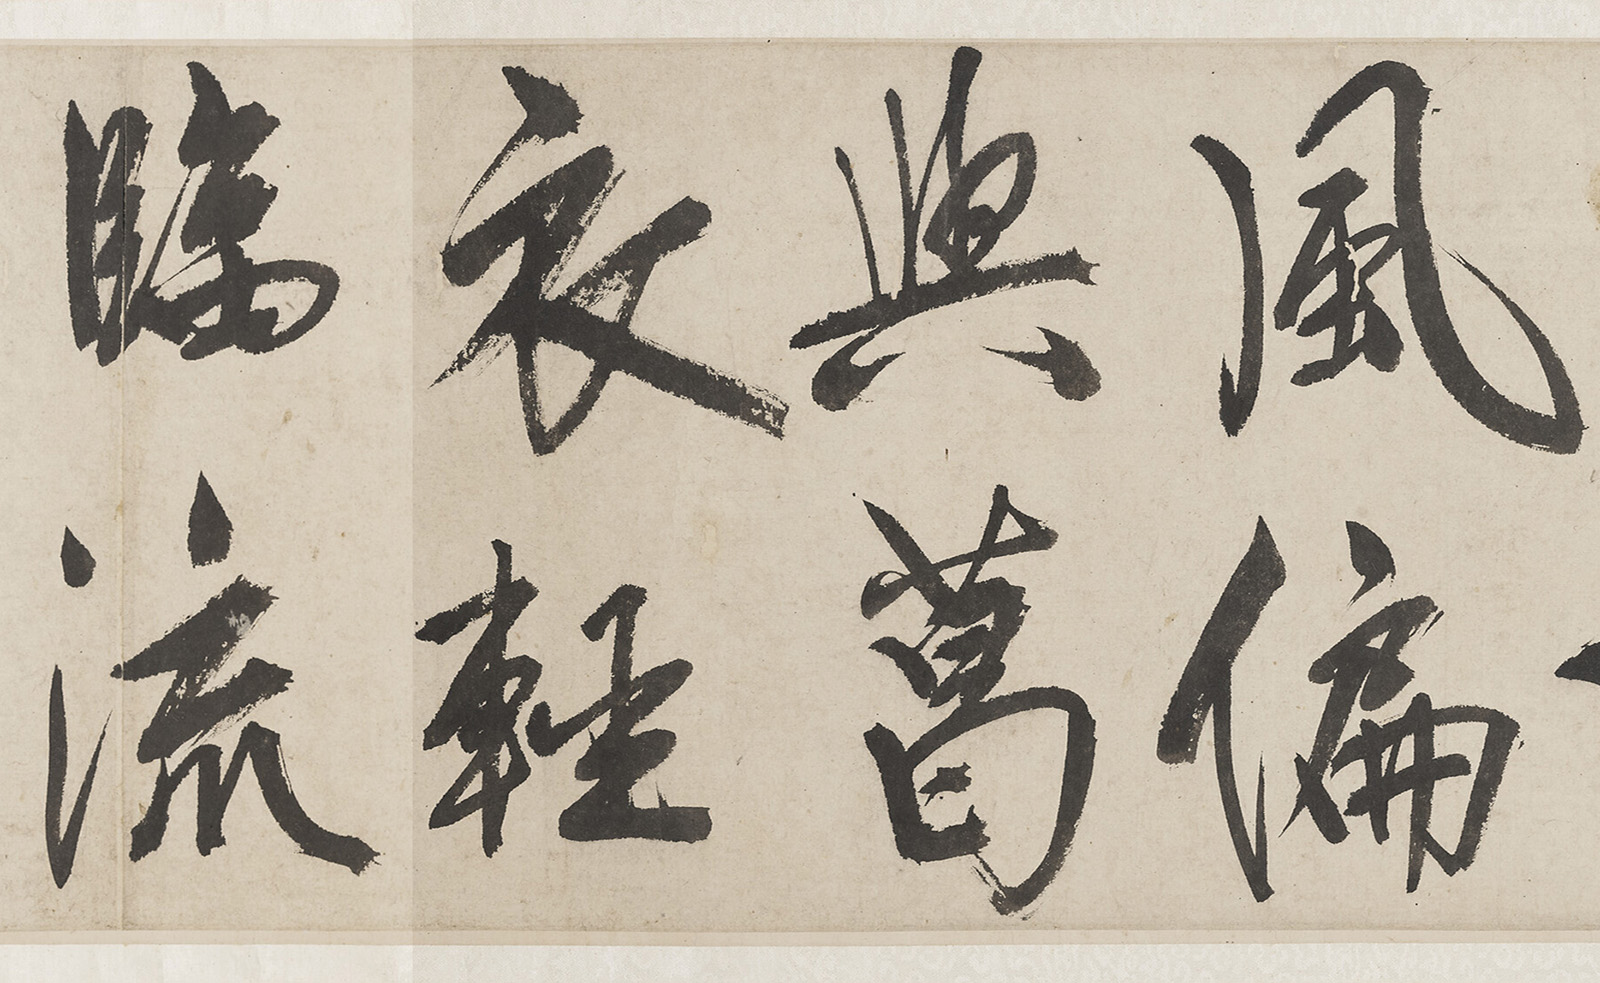 風偏
與葛
衣輕
臨流